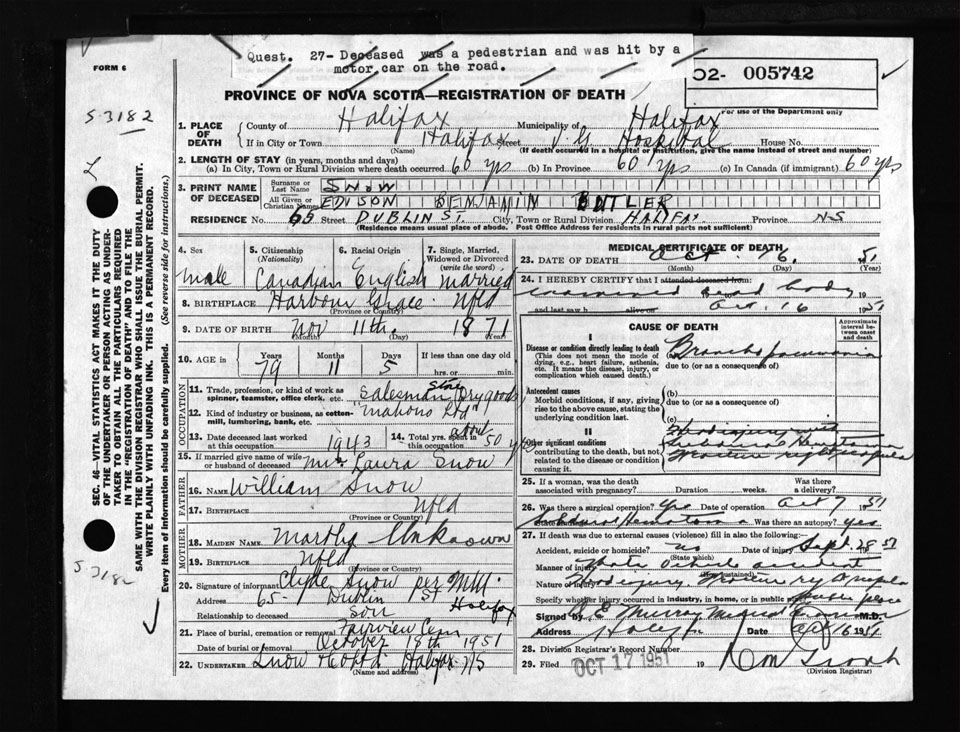 Quest. 27- Deceased was a pedestrian and was hit by a
motor car on the road.
FORM 6
O2- 005742
S-3182
PROVINCE OF NOVA SCOTIA—REGISTRATION OF DEATH
For use of the Department only
1. PLACE OF DEATH { County of Halifax Municipality of Halifax
If in City or Town Halifax Street V.G. Hospital House No.
(Name) (If death occurred in a hospital or institution, give the name instead of street and number)
2. LENGTH OF STAY (in years, months and days)
(a) In City, Town or Rural Division where death occurred 60 yrs (b) In Province 60 yrs (c) In Canada (if immigrant) 60 yrs
3. PRINT NAME OF DECEASED { Surname or Last Name SNOW
All Given or Christian Names EDISON BENJAMIN BUTLER
RESIDENCE No. 65 Street DUBLIN ST. City, Town or Rural Division HALIFAX Province N-S
(Residence means usual place of abode. Post Office Address for residents in rural parts not sufficient)
SEC. 46—VITAL STATISTICS ACT MAKES IT THE DUTY
OF THE UNDERTAKER OR PERSON ACTING AS UNDER-
TAKER TO OBTAIN ALL THE PARTICULARS REQUIRED
IN THE "REGISTRATION OF DEATH" AND TO FILE THE
SAME WITH THE DIVISION REGISTRAR WHO SHALL ISSUE THE BURIAL PERMIT.
WRITE PLAINLY WITH UNFADING INK. THIS IS A PERMANENT RECORD.
Every item of information should be carefully supplied. (See reverse side for instructions.)
S-3182
4. Sex 5. Citizenship (Nationality) 6. Racial Origin 7. Single, Married, Widowed or Divorced (write the word)
male Canadian English married
8. BIRTHPLACE Harbour Grace Nfld
(Province or Country)
9. DATE OF BIRTH Nov 11th. 1871
(Month) (Day) (Year)
10. AGE in Years Months Days If less than one day old
79 11 5 hrs. or min.
OCCUPATION
11. Trade, profession, or kind of work as spinner, teamster, office clerk, etc. Salesman Store Dry goods
12. Kind of industry or business, as cotton-mill, lumbering, bank, etc. "Mahons Ltd"
13. Date deceased last worked at this occupation 1943 14. Total yrs. spent in this occupation about 50 yrs
15. If married give name of wife or husband of deceased Mrs Laura Snow
FATHER
16. NAME William Snow
17. BIRTHPLACE Nfld
(Province or Country)
MOTHER
18. MAIDEN NAME Martha Unknown
19. BIRTHPLACE Nfld
(Province or Country)
20. Signature of informant Clyde Snow per
Address 65- Dublin St Halifax
Relationship to deceased Son
21. Place of burial, cremation or removal Fairview Cem
Date of burial or removal October 18th 1951
22. UNDERTAKER Snow & Co Ltd. Halifax N/S
(Name and address)
MEDICAL CERTIFICATE OF DEATH
23. DATE OF DEATH Oct. 16. 51
(Month) (Day) (Year)
24. I HEREBY CERTIFY that I attended deceased from:
examined dead body 19
and last saw h alive on Oct. 16 1951
CAUSE OF DEATH
Approximate interval between onset and death
I
Disease or condition directly leading to death
(This does not mean the mode of dying, e.g., heart failure, asthenia, etc. It means the disease, injury, or complication which caused death.)
(a) Broncho pneumonia
due to (or as a consequence of)
Antecedent causes
Morbid conditions, if any, giving rise to the above cause, stating the underlying condition last.
(b)
due to (or as a consequence of)
(c)
II
Other significant conditions
contributing to the death, but not related to the disease or condition causing it.
Head injury with
Subdural Hematoma
Fracture right scapula
25. If a woman, was the death associated with pregnancy? Duration weeks. Was there a delivery?
26. Was there a surgical operation? Yes Date of operation Oct 7 1951
Subdural Hematoma Was there an autopsy? Yes
27. If death was due to external causes (violence) fill in also the following:
Accident, suicide or homicide? Date of injury Sept. 28 51
(State which)
Manner of injury Motor vehicle accident
Nature of injury Head injury Fracture rt scapula
Specify whether injury occurred in industry, in home, or in public place Public place
Signed by Murray Medical Examiner M.D.
Address Halifax Date Oct 16 1951
28. Division Registrar's Record Number
29. Filed OCT 17 1951 19
(Division Registrar)